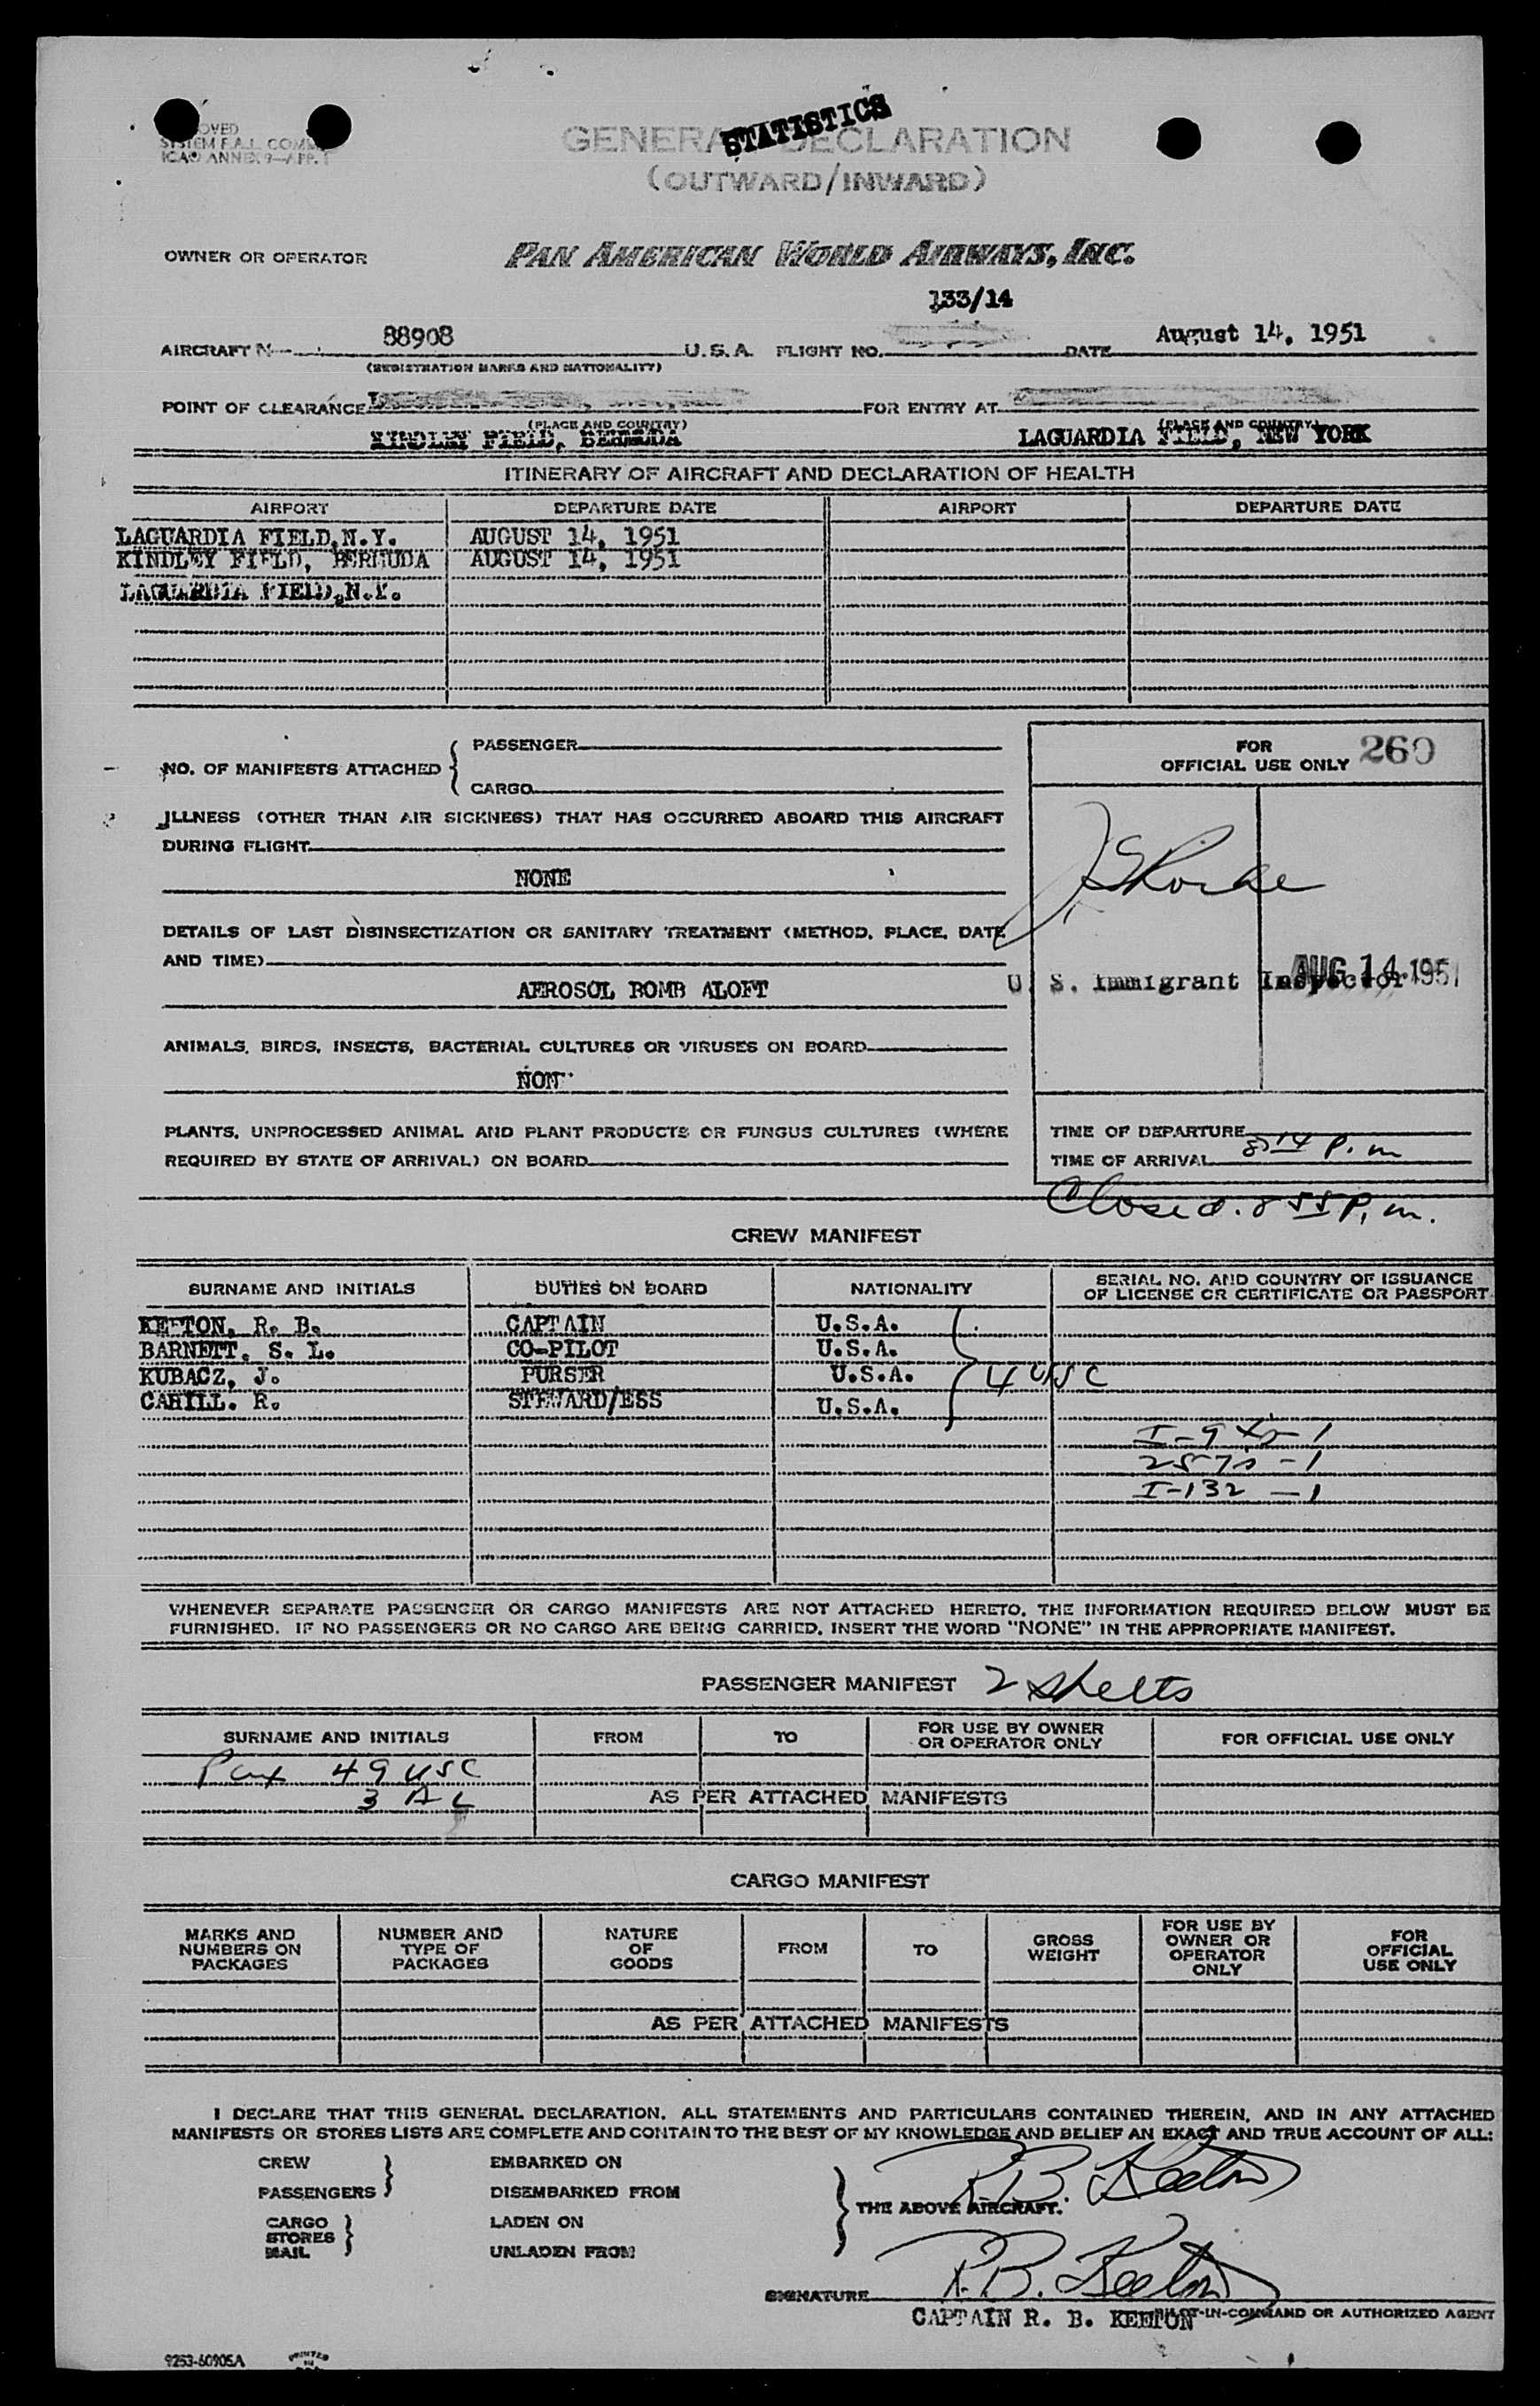 STATISTICS
OVED
SYSTEM F.A.L. COMM
ICAO ANNEX 9—APP. 1
GENERAL DECLARATION
(OUTWARD/INWARD)
OWNER OR OPERATOR PAN AMERICAN WORLD AIRWAYS, INC.
133/14
AIRCRAFT N 88908 U.S.A. FLIGHT NO. DATE August 14, 1951
(REGISTRATION MARKS AND NATIONALITY)
POINT OF CLEARANCE FOR ENTRY AT
(PLACE AND COUNTRY) (PLACE AND COUNTRY)
KINDLEY FIELD, BERMUDA LAGUARDIA FIELD, NEW YORK
ITINERARY OF AIRCRAFT AND DECLARATION OF HEALTH
AIRPORT DEPARTURE DATE AIRPORT DEPARTURE DATE
LAGUARDIA FIELD, N.Y. AUGUST 14, 1951
KINDLEY FIELD, BERMUDA AUGUST 14, 1951
LAGUARDIA FIELD, N.Y.
NO. OF MANIFESTS ATTACHED { PASSENGER
CARGO
FOR
OFFICIAL USE ONLY 260
ILLNESS (OTHER THAN AIR SICKNESS) THAT HAS OCCURRED ABOARD THIS AIRCRAFT
DURING FLIGHT
NONE
DETAILS OF LAST DISINSECTIZATION OR SANITARY TREATMENT (METHOD, PLACE, DATE
AND TIME)
AEROSOL BOMB ALOFT
U. S. Immigrant Inspector
AUG 14 1951
ANIMALS, BIRDS, INSECTS, BACTERIAL CULTURES OR VIRUSES ON BOARD
NON
PLANTS, UNPROCESSED ANIMAL AND PLANT PRODUCTS OR FUNGUS CULTURES (WHERE
REQUIRED BY STATE OF ARRIVAL) ON BOARD
TIME OF DEPARTURE
TIME OF ARRIVAL 8 14 P.m
Closed. 8 55 P.m.
CREW MANIFEST
SURNAME AND INITIALS DUTIES ON BOARD NATIONALITY SERIAL NO. AND COUNTRY OF ISSUANCE
OF LICENSE OR CERTIFICATE OR PASSPORT
KEETON, R. B. CAPTAIN U.S.A.
BARNETT, S. L. CO-PILOT U.S.A.
KUBACZ, J. PURSER U.S.A. 4 USC
CAHILL. R. STEWARD/ESS U.S.A.
I-132 - 1
WHENEVER SEPARATE PASSENGER OR CARGO MANIFESTS ARE NOT ATTACHED HERETO, THE INFORMATION REQUIRED BELOW MUST BE
FURNISHED. IF NO PASSENGERS OR NO CARGO ARE BEING CARRIED, INSERT THE WORD "NONE" IN THE APPROPRIATE MANIFEST.
PASSENGER MANIFEST 2 sheets
SURNAME AND INITIALS FROM TO FOR USE BY OWNER
OR OPERATOR ONLY FOR OFFICIAL USE ONLY
Pax 49 USC
3 AL
AS PER ATTACHED MANIFESTS
CARGO MANIFEST
MARKS AND
NUMBERS ON
PACKAGES
NUMBER AND
TYPE OF
PACKAGES
NATURE
OF
GOODS
FROM
TO
GROSS
WEIGHT
FOR USE BY
OWNER OR
OPERATOR
ONLY
FOR
OFFICIAL
USE ONLY
AS PER ATTACHED MANIFESTS
I DECLARE THAT THIS GENERAL DECLARATION, ALL STATEMENTS AND PARTICULARS CONTAINED THEREIN, AND IN ANY ATTACHED
MANIFESTS OR STORES LISTS ARE COMPLETE AND CONTAIN TO THE BEST OF MY KNOWLEDGE AND BELIEF AN EXACT AND TRUE ACCOUNT OF ALL:
CREW EMBARKED ON
PASSENGERS DISEMBARKED FROM
THE ABOVE AIRCRAFT.
R.B. Keeton
CARGO LADEN ON
STORES
MAIL UNLADEN FROM
SIGNATURE R.B. Keeton
CAPTAIN R. B. KEETON PILOT-IN-COMMAND OR AUTHORIZED AGENT
9253-60905A
PRINTED
IN